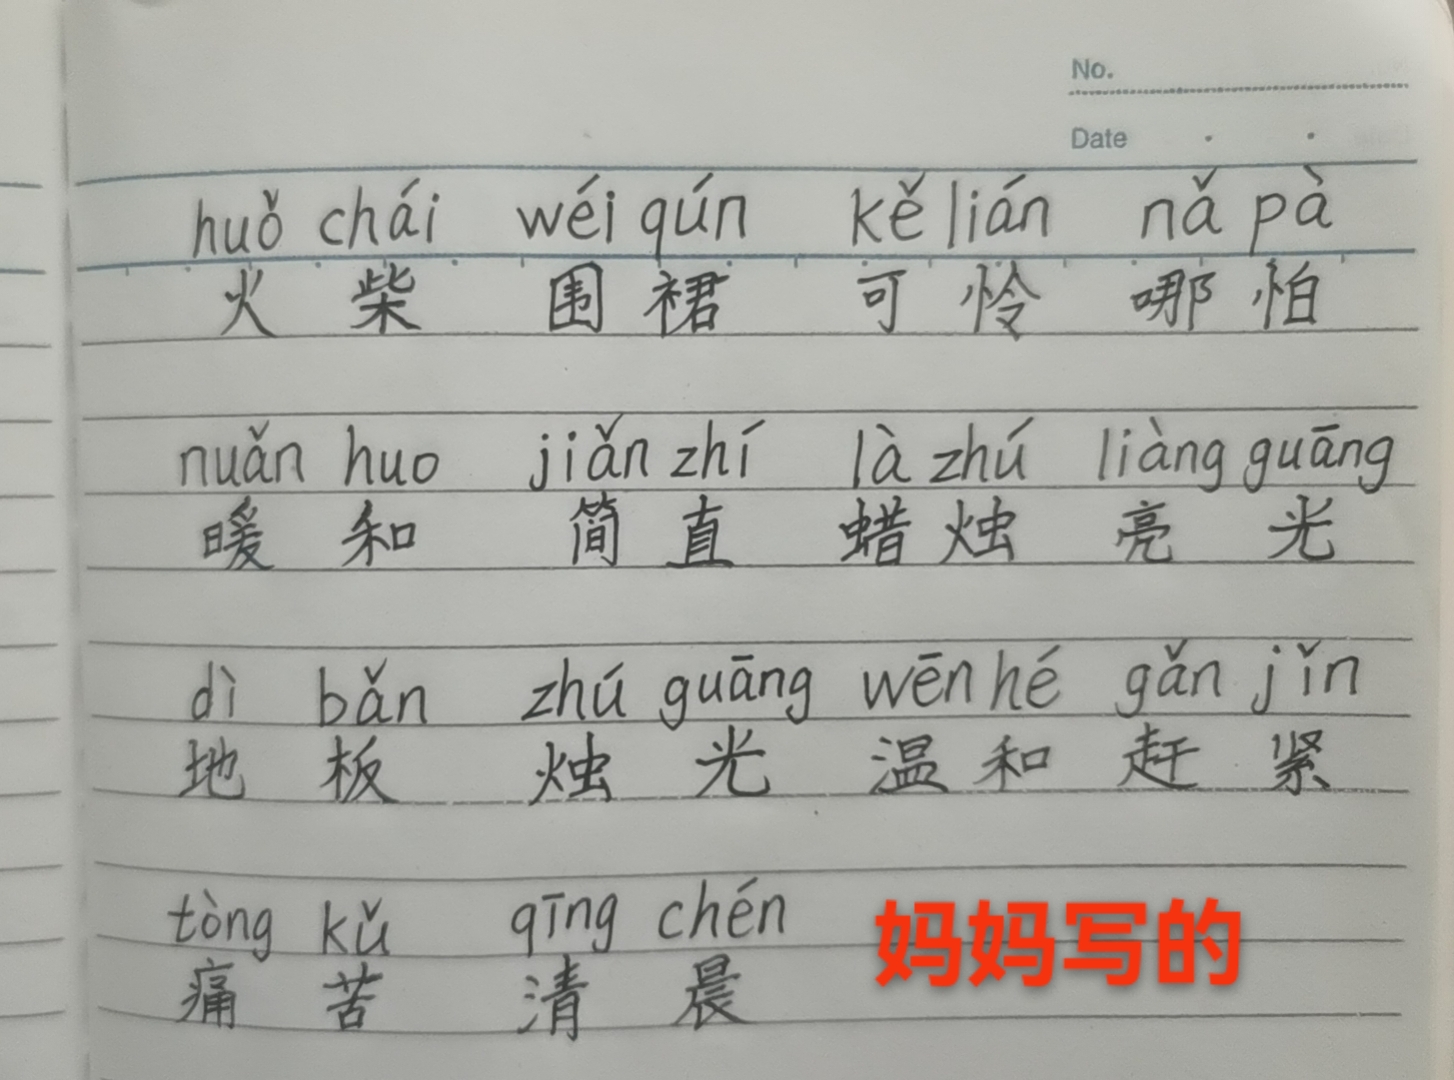 No.
Date
huǒ chái wéi qún kě lián nǎ pà
火 柴 围 裙 可 怜 哪 怕
nuǎn huo jiǎn zhí là zhú liàng guāng
暖 和 简 直 蜡 烛 亮 光
dì bǎn zhú guāng wēn hé gǎn jǐn
地 板 烛 光 温 和 赶 紧
tòng kǔ qīng chén
痛 苦 清 晨
妈妈写的